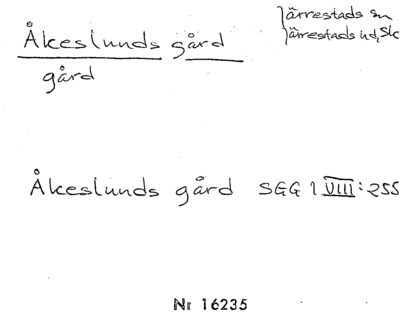 Åkeslunds gård
gård
Järrestads sn
Järrestads hd, Sk
Åkeslunds gård SGG 1 VIII: 255
Nr 16235